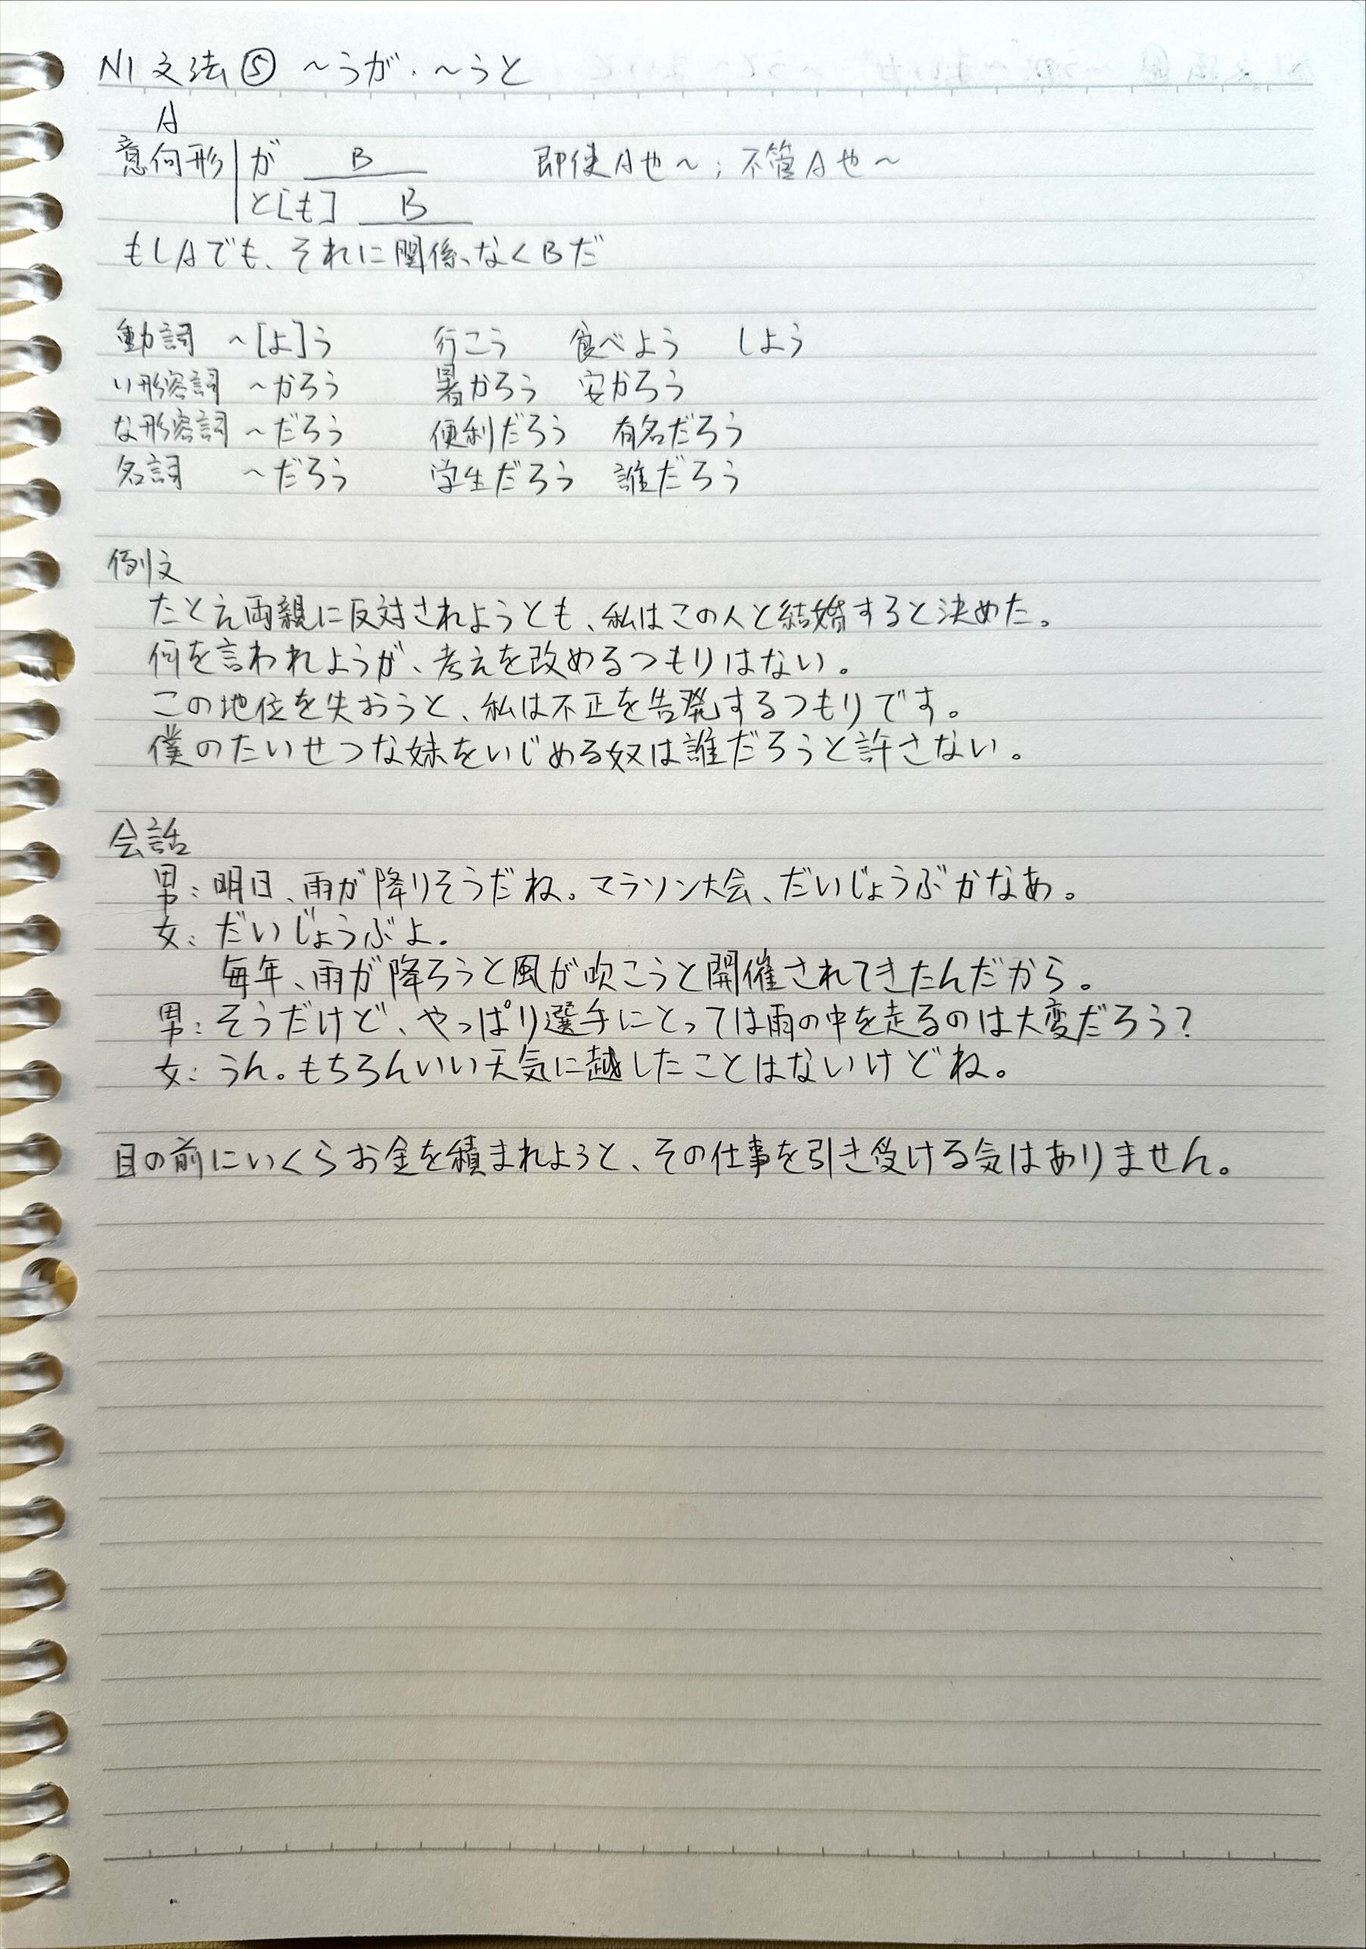 N1 文法⑤ ～うが・～うと
A
意向形 が B 即使A也～；不管A也～
と[も] B
もしAでも、それに関係なくBだ
動詞 ～[よ]う 行こう 食べよう しよう
い形容詞 ～かろう 暑かろう 安かろう
な形容詞 ～だろう 便利だろう 有名だろう
名詞 ～だろう 学生だろう 誰だろう
例文
たとえ両親に反対されようとも、私はこの人と結婚すると決めた。
何を言われようが、考えを改めるつもりはない。
この地位を失おうと、私は不正を告発するつもりです。
僕のたいせつな妹をいじめる奴は誰だろうと許さない。
会話
男：明日、雨が降りそうだね。マラソン大会、だいじょうぶかなあ。
女：だいじょうぶよ。
毎年、雨が降ろうと風が吹こうと開催されてきたんだから。
男：そうだけど、やっぱり選手にとっては雨の中を走るのは大変だろう？
女：うん。もちろんいい天気に越したことはないけどね。
目の前にいくらお金を積まれようと、その仕事を引き受ける気はありません。